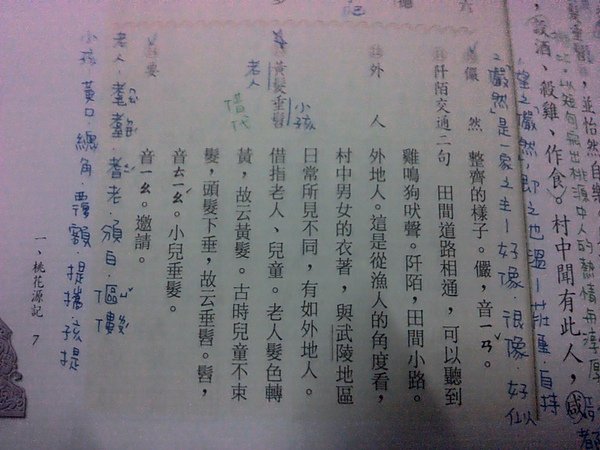 設酒、殺雞、作食。村中聞有此人，咸
望之儼然，即之也溫－莊重．自持
儼然是一家之主－好像．很像．好似
儼　然　整齊的樣子。儼，音ㄧㄢˇ。
阡陌交通二句　田間道路相通，可以聽到
雞鳴狗吠聲。阡陌，田間小路。
外　人　外地人。這是從漁人的角度看，
村中男女的衣著，與武陵地區
日常所見不同，有如外地人。
黃髮垂髫　借指老人、兒童。老人髮色轉
小孩
老人
借代
黃，故云黃髮。古時兒童不束
髮，頭髮下垂，故云垂髫。髫，
音ㄊㄧㄠˊ。小兒垂髮。
要　音ㄧㄠ。邀請。
老人：耄耋．耆老．頒白．傴僂
小孩：黃口．總角．覆額．提攜．孩提
一、桃花源記　7